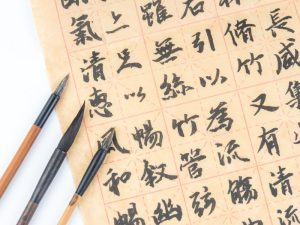 長咸
脩竹又有清流
引以為流觴
雖無絲竹管弦
足以暢敘幽
氣清惠風和暢